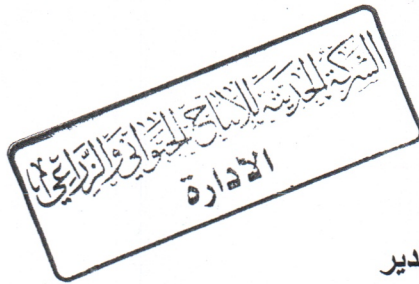 الشركة الحديثة للإنتاج الحيواني والزراعي
الادارة
دير